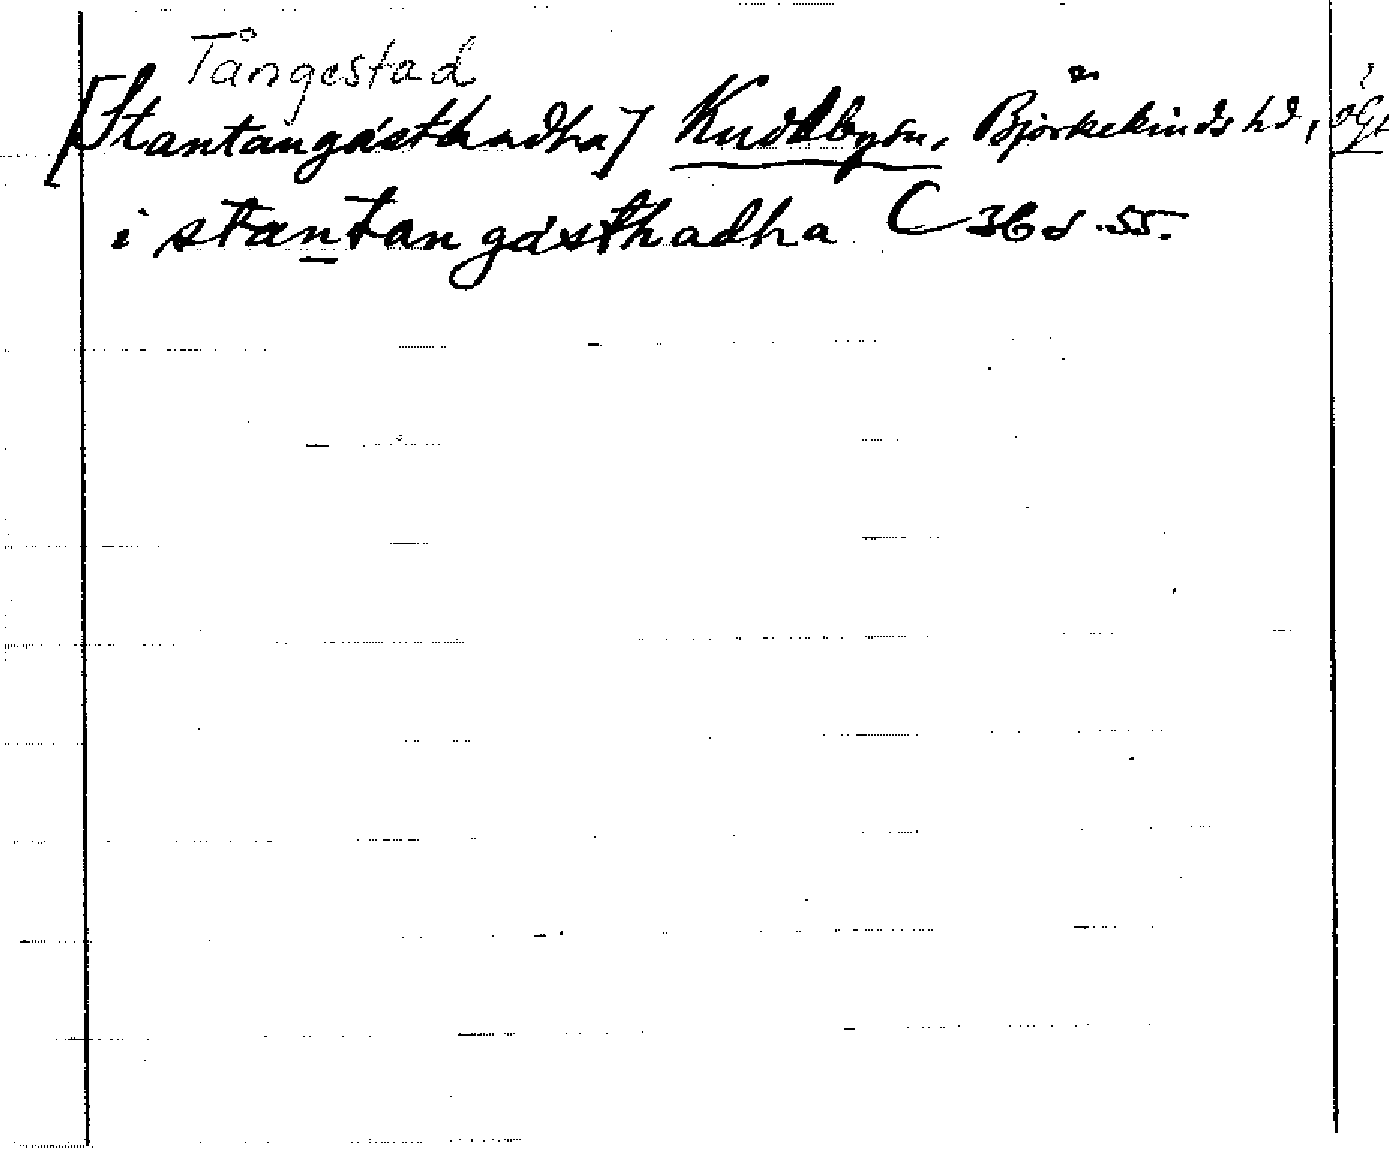 Tångestad
[Stantangästhadha] Kuddbysn, Björkekinds hd, ögl
i stantangästhadha C 36 d. 55.